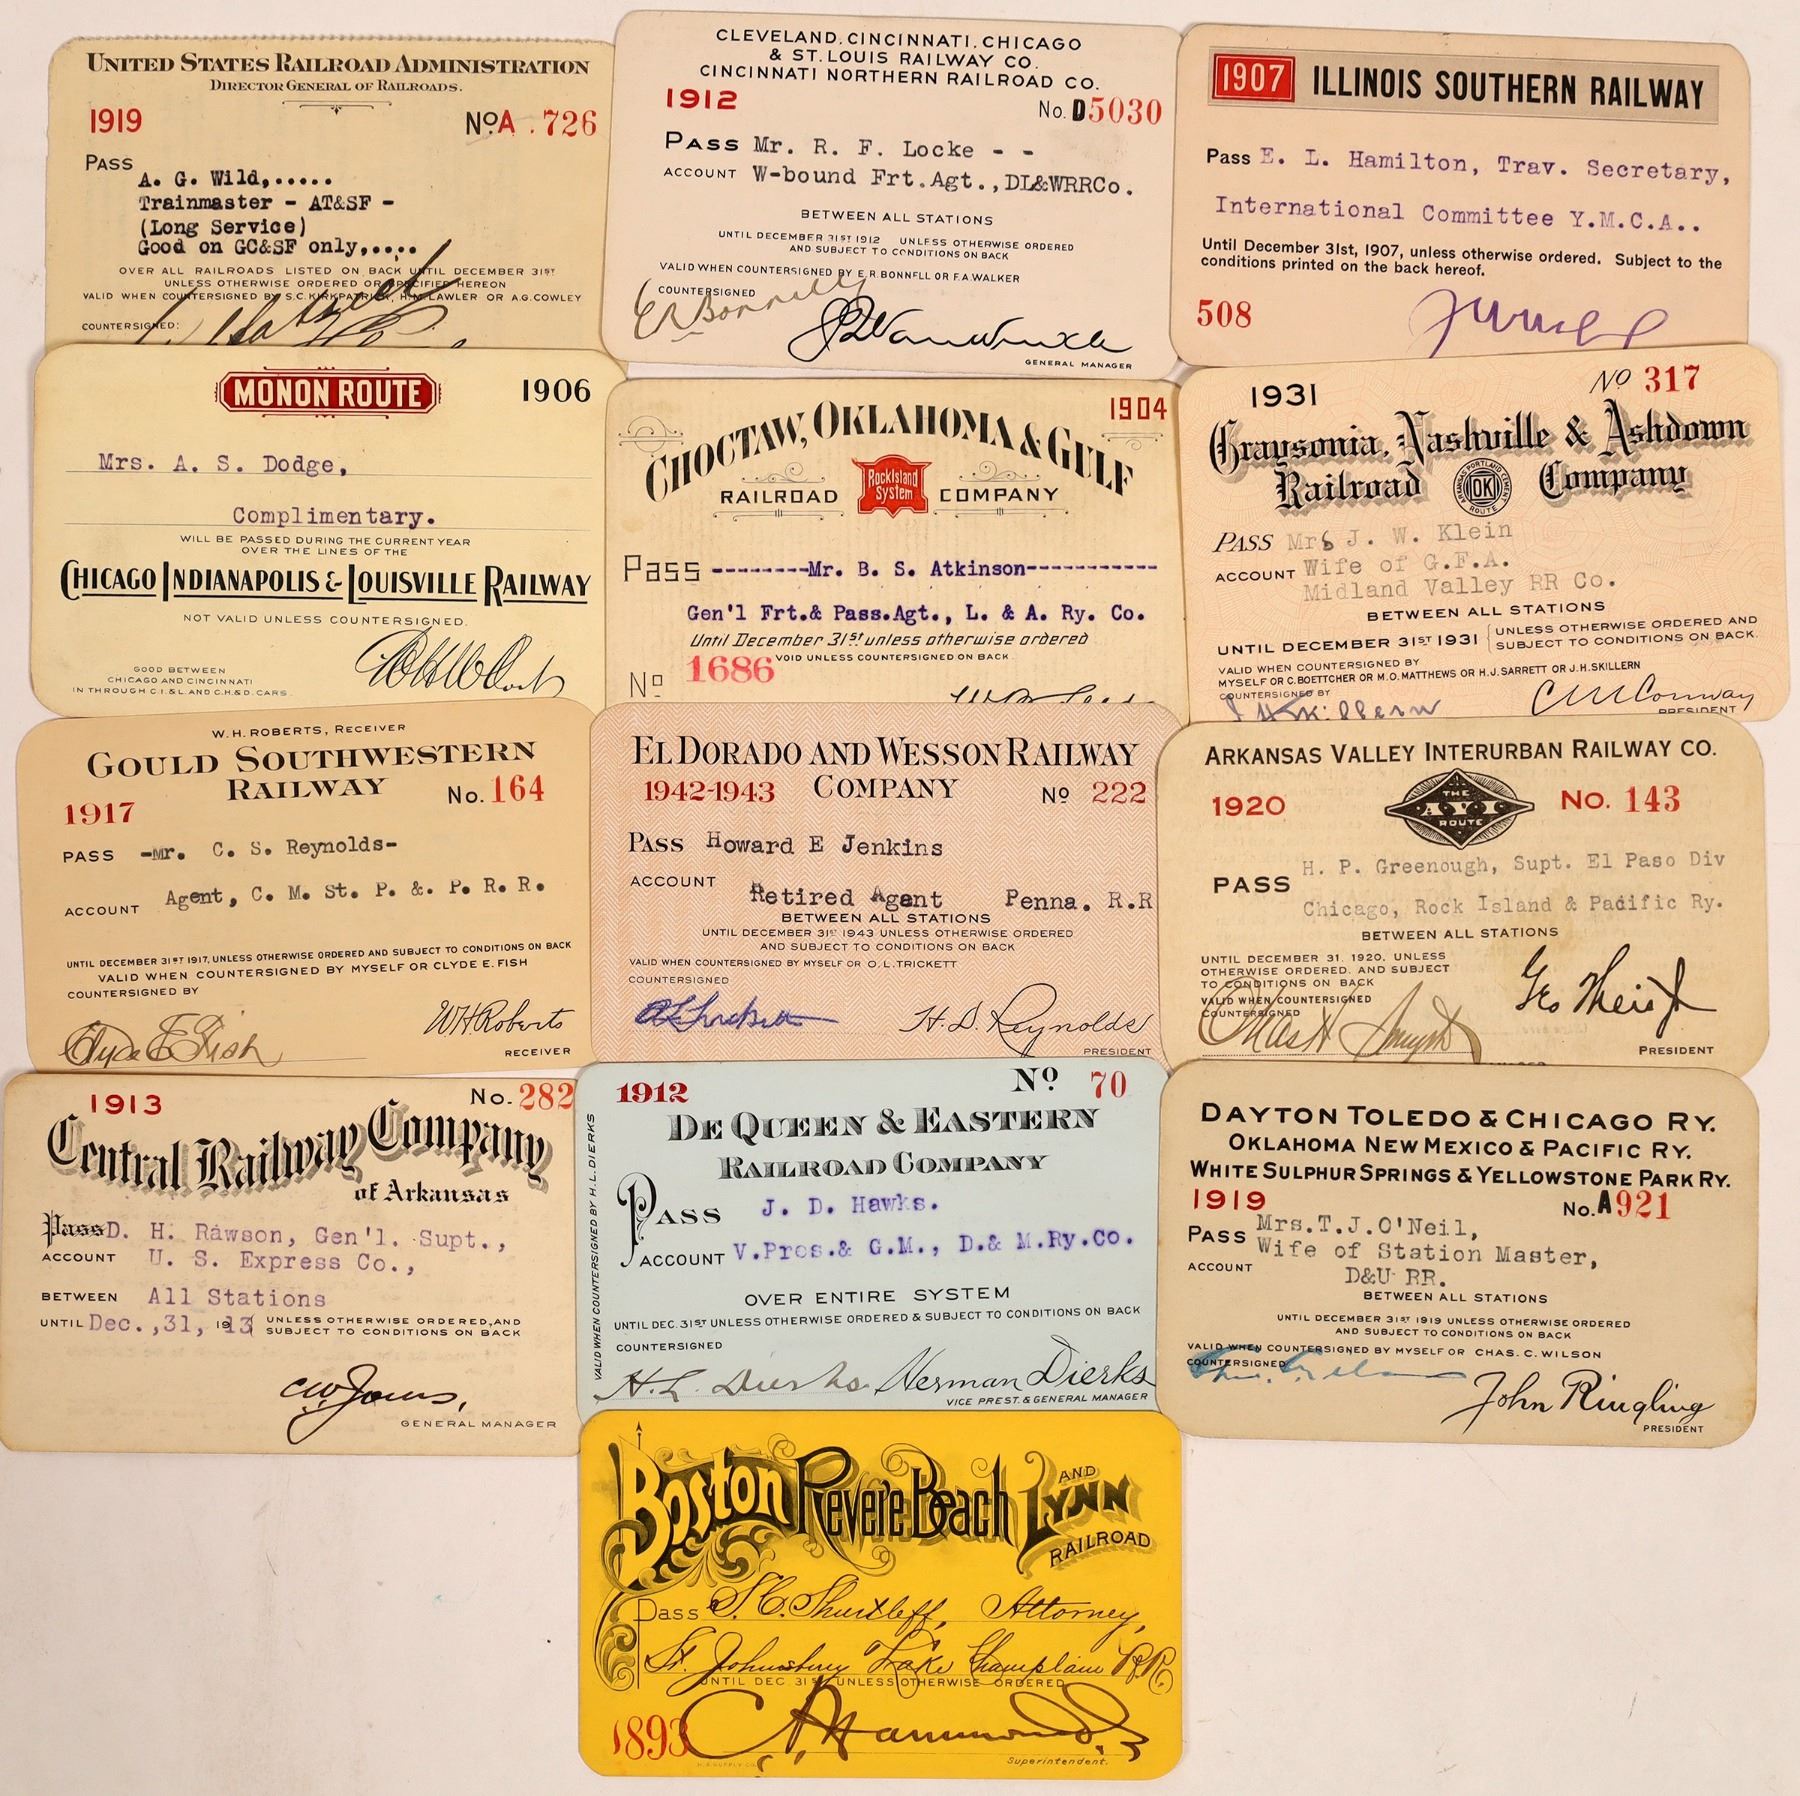 UNITED STATES RAILROAD ADMINISTRATION
DIRECTOR GENERAL OF RAILROADS.
1919 No. A. 726
PASS
A. G. Wild,.....
Trainmaster - AT&SF -
(Long Service)
Good on GC&SF only,....
OVER ALL RAILROADS LISTED ON BACK UNTIL DECEMBER 31ST
UNLESS OTHERWISE ORDERED OR SPECIFIED HEREON
VALID WHEN COUNTERSIGNED BY S.C. KIRKPATRICK, H.M. LAWLER OR A.G. COWLEY
COUNTERSIGNED:
CLEVELAND, CINCINNATI, CHICAGO
& ST. LOUIS RAILWAY CO.
CINCINNATI NORTHERN RAILROAD CO.
1912 No. D5030
PASS Mr. R. F. Locke - -
ACCOUNT W-bound Frt.Agt.,DL&WRRCo.
BETWEEN ALL STATIONS
UNTIL DECEMBER 31ST 1912 UNLESS OTHERWISE ORDERED
AND SUBJECT TO CONDITIONS ON BACK
VALID WHEN COUNTERSIGNED BY E.R. BONNELL OR F.A. WALKER
COUNTERSIGNED
ER Bonnell
GENERAL MANAGER
1907 ILLINOIS SOUTHERN RAILWAY
Pass E. L. Hamilton, Trav. Secretary,
International Committee Y.M.C.A..
Until December 31st, 1907, unless otherwise ordered. Subject to the
conditions printed on the back hereof.
508
MONON ROUTE 1906
Mrs. A. S. Dodge,
Complimentary.
WILL BE PASSED DURING THE CURRENT YEAR
OVER THE LINES OF THE
CHICAGO INDIANAPOLIS & LOUISVILLE RAILWAY
NOT VALID UNLESS COUNTERSIGNED.
GOOD BETWEEN
CHICAGO AND CINCINNATI
IN THROUGH C.I.&L. AND C.H.&D. CARS.
1904
CHOCTAW, OKLAHOMA & GULF
RAILROAD Rock Island System COMPANY
Pass --------Mr. B. S. Atkinson-----------
Gen'l Frt.& Pass.Agt., L. & A. Ry. Co.
Until December 31st unless otherwise ordered
VOID UNLESS COUNTERSIGNED ON BACK.
No 1686
1931 No 317
Graysonia, Nashville & Ashdown
Railroad Company
ARKANSAS PORTLAND CEMENT
OK
ROUTE
PASS Mrs J. W. Klein
ACCOUNT Wife of G.F.A.
Midland Valley RR Co.
BETWEEN ALL STATIONS
UNTIL DECEMBER 31ST 1931 { UNLESS OTHERWISE ORDERED AND
SUBJECT TO CONDITIONS ON BACK.
VALID WHEN COUNTERSIGNED BY
MYSELF OR C. BOETTCHER OR M.O. MATTHEWS OR H.J. SARRETT OR J.H. SKILLERN
COUNTERSIGNED BY
J H Skillern
PRESIDENT
W.H. ROBERTS, RECEIVER
GOULD SOUTHWESTERN
RAILWAY
1917 No. 164
PASS -Mr. C. S. Reynolds-
ACCOUNT Agent, C. M. St. P. &. P. R. R.
UNTIL DECEMBER 31ST 1917, UNLESS OTHERWISE ORDERED AND SUBJECT TO CONDITIONS ON BACK
VALID WHEN COUNTERSIGNED BY MYSELF OR CLYDE E. FISH
COUNTERSIGNED BY
Clyde E Fish
WH Roberts
RECEIVER
EL DORADO AND WESSON RAILWAY
1942-1943 COMPANY No 222
PASS Howard E Jenkins
ACCOUNT Retired Agent Penna. R.R
BETWEEN ALL STATIONS
UNTIL DECEMBER 31ST 1943 UNLESS OTHERWISE ORDERED
AND SUBJECT TO CONDITIONS ON BACK
VALID WHEN COUNTERSIGNED BY MYSELF OR O.L. TRICKETT
COUNTERSIGNED
OL Trickett
H. D. Reynolds
PRESIDENT
ARKANSAS VALLEY INTERURBAN RAILWAY CO.
1920 THE AVI ROUTE No. 143
PASS H. P. Greenough, Supt. El Paso Div
Chicago, Rock Island & Padific Ry.
BETWEEN ALL STATIONS
UNTIL DECEMBER 31, 1920, UNLESS
OTHERWISE ORDERED, AND SUBJECT
TO CONDITIONS ON BACK
VALID WHEN COUNTERSIGNED
COUNTERSIGNED
Chas H Smyth
Geo Theis Jr
PRESIDENT
1913 No. 282
Central Railway Company
of Arkansas
Pass D. H. Rawson, Gen'l. Supt.,
ACCOUNT U. S. Express Co.,
BETWEEN All Stations
UNTIL Dec.,31, 1913 UNLESS OTHERWISE ORDERED, AND
SUBJECT TO CONDITIONS ON BACK
GENERAL MANAGER
VALID WHEN COUNTERSIGNED BY H.L. DIERKS
1912 No 70
DE QUEEN & EASTERN
RAILROAD COMPANY
PASS J. D. Hawks.
ACCOUNT V.Pres.& G.M., D.& M.Ry.Co.
OVER ENTIRE SYSTEM
UNTIL DEC. 31ST UNLESS OTHERWISE ORDERED & SUBJECT TO CONDITIONS ON BACK
COUNTERSIGNED
H. L. Dierks Herman Dierks
VICE PREST. & GENERAL MANAGER
DAYTON TOLEDO & CHICAGO RY.
OKLAHOMA NEW MEXICO & PACIFIC RY.
WHITE SULPHUR SPRINGS & YELLOWSTONE PARK RY.
1919 No. A921
PASS Mrs.T.J.O'Neil,
ACCOUNT Wife of Station Master,
D&U RR.
BETWEEN ALL STATIONS
UNTIL DECEMBER 31ST 1919 UNLESS OTHERWISE ORDERED
AND SUBJECT TO CONDITIONS ON BACK
VALID WHEN COUNTERSIGNED BY MYSELF OR CHAS. C. WILSON
COUNTERSIGNED
John Ringling
PRESIDENT
Boston Revere Beach AND Lynn
RAILROAD
Pass S. C. Shurtleff, Attorney,
St. Johnsbury & Lake Champlain RR.
UNTIL DEC. 31ST UNLESS OTHERWISE ORDERED
1893 C. A. Hammond
Superintendent.